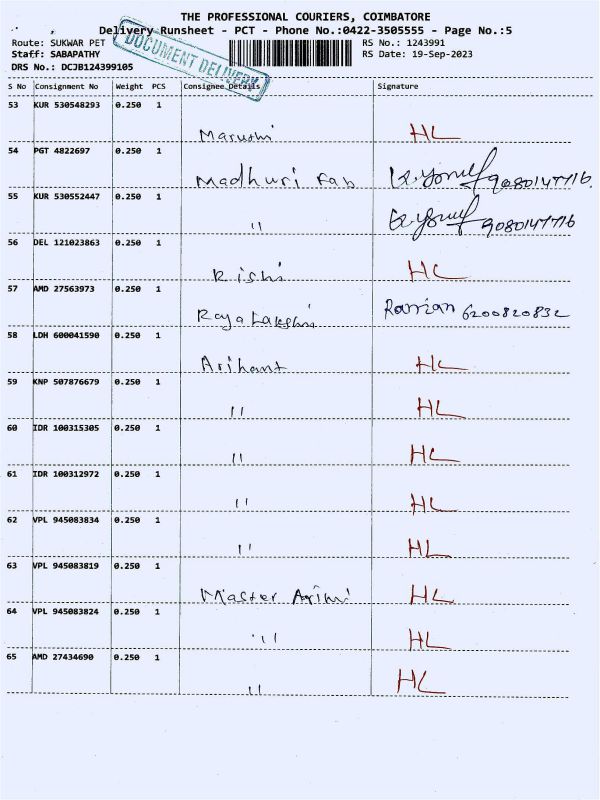 THE PROFESSIONAL COURIERS, COIMBATORE
Delivery Runsheet - PCT - Phone No.:0422-3505555 - Page No.:5
Route: SUKWAR PET RS No.: 1243991
Staff: SABAPATHY RS Date: 19-Sep-2023
DRS No.: DCJB124399105
DOCUMENT DELIVERY
S No Consignment No Weight PCS Consignee Details Signature
53 KUR 530548293 0.250 1
Maruthi HL
54 PGT 4822697 0.250 1
Madhuri Fab 9080147716.
55 KUR 530552447 0.250 1
" 9080147716
56 DEL 121023863 0.250 1
Rishi HL
57 AMD 27563973 0.250 1
Raja Lakshmi 6200820832
58 LDH 600041590 0.250 1
Arihant HL
59 KNP 507876679 0.250 1
" HL
60 IDR 100315305 0.250 1
" HL
61 IDR 100312972 0.250 1
" HL
62 VPL 945083834 0.250 1
" HL
63 VPL 945083819 0.250 1
Master HL
64 VPL 945083824 0.250 1
" HL
65 AMD 27434690 0.250 1
" HL